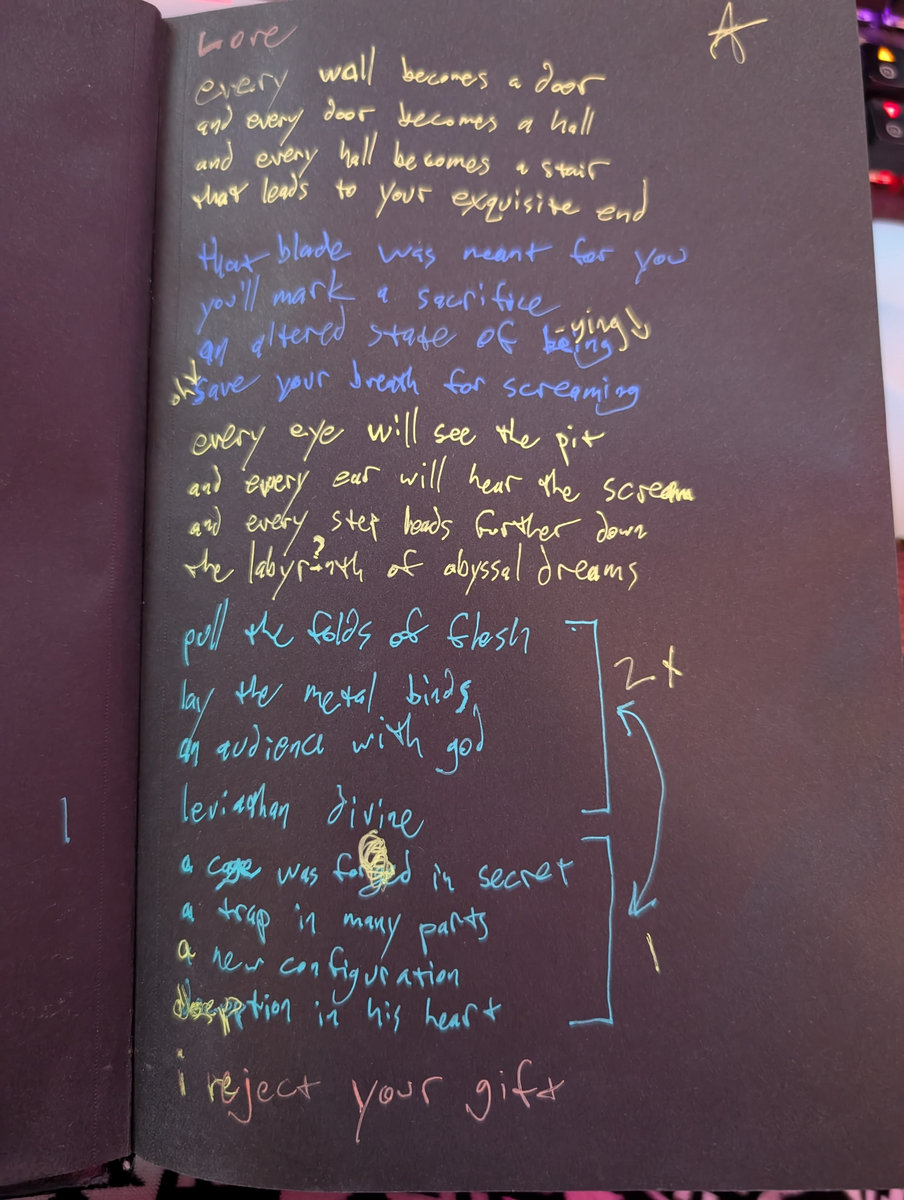 Lore
A
every wall becomes a door
and every door becomes a hall
and every hall becomes a stair
that leads to your exquisite end
that blade was meant for you
you'll mark a sacrifice
-ying↓
an altered state of being
oh↓
save your breath for screaming
every eye will see the pit
and every ear will hear the scream
and every step leads further down
?
the labyrinth of abyssal dreams
pull the folds of flesh
2x
lay the metal binds
an audience with god
leviathan divine
a cage was forged in secret
a trap in many parts
1
a new configuration
deception in his heart
i reject your gift